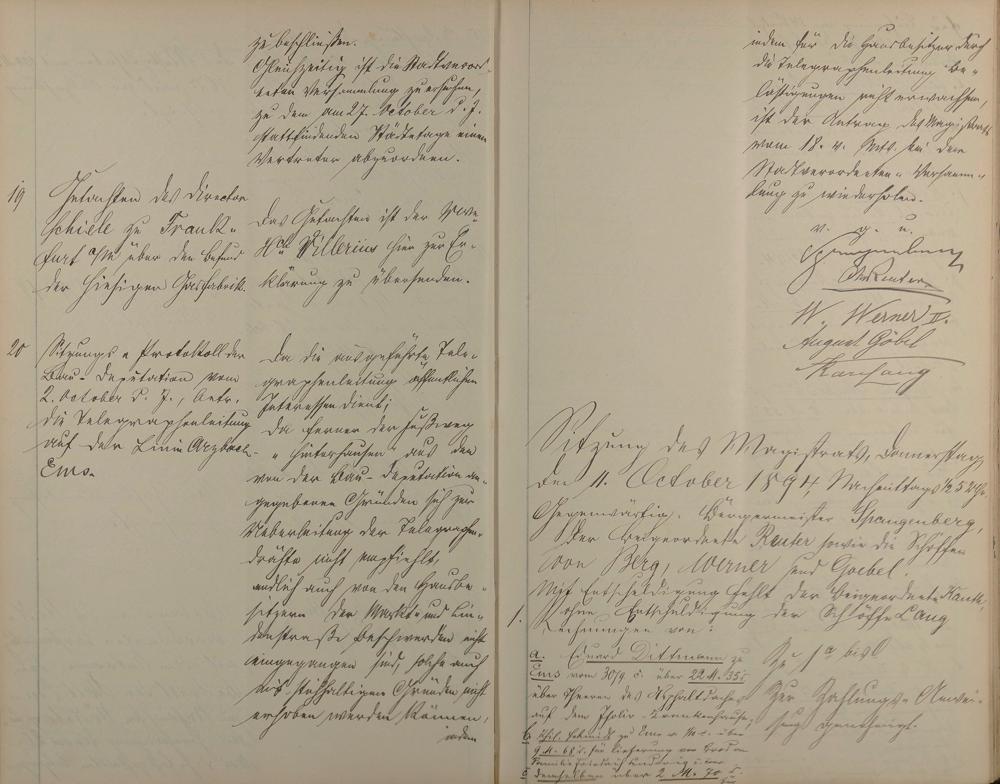 zu beschließen.
Gleichzeitig ist die Stadtverord-
neten Versammlung zu ersuchen,
zu dem am 27. October d. J.
stattfindenden Städtetage einen
Vertreter abzuordnen.
19 Gutachten des Director
Schiele zu Frank-
furt a/M über den Befund
der hiesigen Gasfabrik.
Das Gutachten ist der
Villerius hier zur Er-
klärung zu übersenden.
20 Sitzungs-Protokoll der
Bau-Deputation vom
2. October d. J., betr.
die Telegraphenleitung
auf der Linie Arzbach-
Ems.
Da die ausgeführte Tele-
graphenleitung öffentlichen
Interessen dient;
da ferner der Fußweg
"Hinterhausen" aus den
von der Bau-Deputation an-
gegebenen Gründen sich zur
Ueberleitung der Telegraphen-
drähte nicht empfiehlt,
endlich auch von den Hausbe-
sitzern der Markt- und Lin-
denstraße Beschwerden nicht
eingegangen sind, solche auch
aus stichhaltigen Gründen nicht
erhoben werden können,
indem
indem für die Hausbesitzer durch
die Telegraphenleitung Be-
lästigungen nicht erwachsen,
ist der Antrag des Magistrats
vom 18. v. Mts. bei der
Stadtverordneten-Versamm-
lung zu wiederholen.
v. g. u.
Spangenberg
Reuter
W. Werner II.
August Göbel
Karl Lang
Sitzung des Magistrats, Donnerstag
den 11. October 1894, Nachmittags ½5 Uhr.
Gegenwärtig: Bürgermeister Spangenberg,
der Beigeordnete Reuter sowie die Schöffen
von Berg, Werner und Goebel.
Mit Entschuldigung fehlt der Beigeordnete
ohne Entschuldigung der Schöffe Lang
1. Rechnungen von:
a. Eduard Dittmann zu
Ems vom 30/9. c. über 22 M. 35
über Theeren des Asphaltdaches
auf dem
Zu 1a bis
zur Zahlungs-Anwei-
sung genehmigt.
b. Phil. zu Ems über
9 M. 68 für Lieferung von Brod an
Familie
c. demselben über 2 M. 70